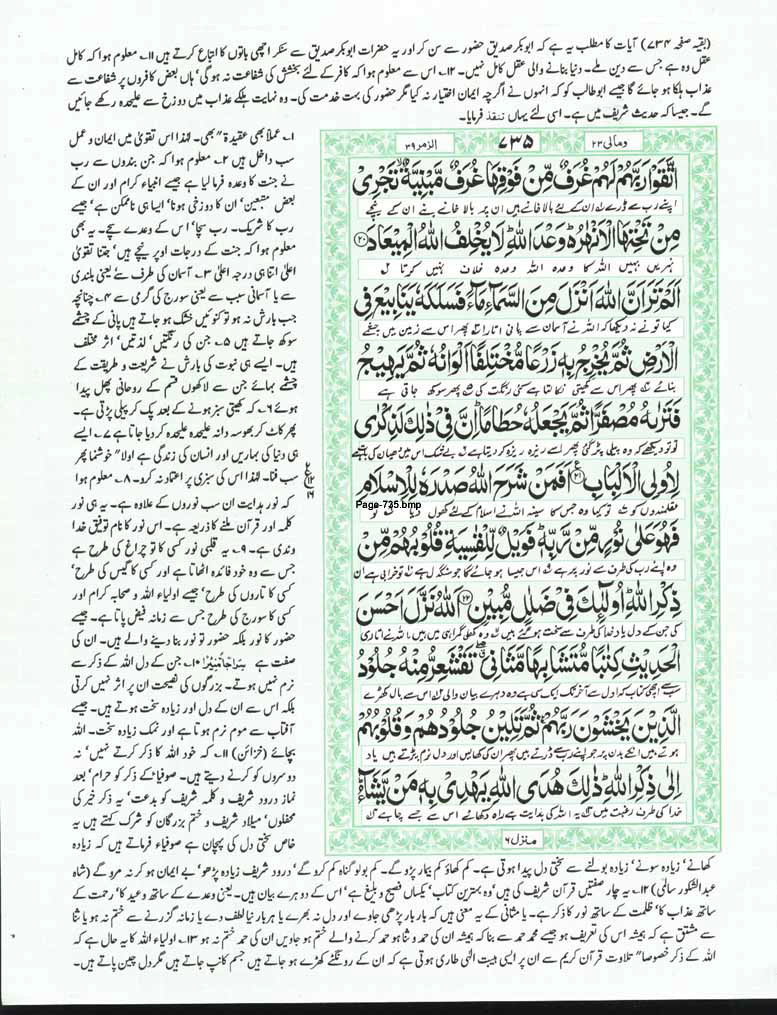 (بقیہ صفحہ ۷۳۴) آیات کا مطلب یہ ہے کہ ابوبکر صدیق حضور سے سن کر اور یہ حضرات ابوبکر صدیق سے سنکر اچھی باتوں کا اتباع کرتے ہیں ۱۱۔ معلوم ہوا کہ کامل
عقل وہ ہے جس سے دین ملے۔ دنیا بنانے والی عقل کامل نہیں۔ ۱۲۔ اس سے معلوم ہوا کہ کافر کے لئے بخشش کی شفاعت نہ ہوگی' ہاں بعض کافروں پر شفاعت سے
عذاب ہلکا ہو جائے گا جیسے ابوطالب کو کہ انہوں نے اگرچہ ایمان اختیار نہ کیا مگر حضور کی بہت خدمت کی۔ وہ نہایت ہلکے عذاب میں دوزخ سے علیحدہ رکھے جائیں
گے۔ جیسا کہ حدیث شریف میں ہے۔ اسی لئے یہاں تنقذ فرمایا۔
ومالی ۲۳
۷۳۵
الزمر ۳۹
اتَّقَوْا رَبَّهُمْ لَهُمْ غُرَفٌ مِّنْ فَوْقِهَا غُرَفٌ مَّبْنِيَّةٌ تَجْرِیْ
اپنے رب سے ڈرے ان کے لئے بالا خانے ہیں ان پر بالا خانے بنے ان کے نیچے
مِنْ تَحْتِهَا الْاَنْهٰرُ وَعْدَ اللّٰهِ لَا يُخْلِفُ اللّٰهُ الْمِيْعَادَ ۲۰
نہریں بہیں اللہ کا وعدہ اللہ وعدہ خلاف نہیں کرتا
اَلَمْ تَرَ اَنَّ اللّٰهَ اَنْزَلَ مِنَ السَّمَآءِ مَآءً فَسَلَكَهٗ يَنَابِيْعَ فِی
کیا تو نے نہ دیکھا کہ اللہ نے آسمان سے پانی اتارا پھر اس سے زمین میں چشمے
الْاَرْضِ ثُمَّ يُخْرِجُ بِهٖ زَرْعًا مُّخْتَلِفًا اَلْوَانُهٗ ثُمَّ يَهِيْجُ
بنائے پھر اس سے کھیتی نکالتا ہے کئی رنگت کی پھر سوکھ جاتی ہے
فَتَرٰىهُ مُصْفَرًّا ثُمَّ يَجْعَلُهٗ حُطَامًا اِنَّ فِیْ ذٰلِكَ لَذِكْرٰی
تو تو دیکھے کہ وہ پیلی پڑ گئی پھر اسے ریزہ ریزہ کر دیتا ہے بے شک اس میں دھیان کی بات ہے
لِاُولِی الْاَلْبَابِ ۲۱ اَفَمَنْ شَرَحَ اللّٰهُ صَدْرَهٗ لِلْاِسْلَامِ
عقلمندوں کو تو کیا وہ جس کا سینہ اللہ نے اسلام کے لئے کھول دیا تو
Page-735.bmp
فَهُوَ عَلٰی نُوْرٍ مِّنْ رَّبِّهٖ فَوَيْلٌ لِّلْقٰسِيَةِ قُلُوْبُهُمْ مِّنْ
وہ اپنے رب کی طرف سے نور پر ہے اس جیسا ہو جائے گا جو سنگدل ہے تو خرابی ہے ان
ذِكْرِ اللّٰهِ اُولٰٓئِكَ فِیْ ضَلٰلٍ مُّبِيْنٍ ۲۲ اَللّٰهُ نَزَّلَ اَحْسَنَ
کی جن کے دل یاد خدا کی طرف سے سخت ہو گئے ہیں وہ کھلی گمراہی میں ہیں اللہ نے اتاری
الْحَدِيْثِ كِتٰبًا مُّتَشَابِهًا مَّثَانِیَ تَقْشَعِرُّ مِنْهُ جُلُوْدُ
سب سے اچھی کتاب کہ اول سے آخر تک ایک سی ہے دوہرے بیان والی اس سے بال کھڑے
الَّذِيْنَ يَخْشَوْنَ رَبَّهُمْ ثُمَّ تَلِيْنُ جُلُوْدُهُمْ وَقُلُوْبُهُمْ
ہوتے ہیں انکے بدن پر جو اپنے رب سے ڈرتے ہیں پھر ان کی کھالیں اور دل نرم پڑتے ہیں یاد
اِلٰی ذِكْرِ اللّٰهِ ذٰلِكَ هُدَی اللّٰهِ يَهْدِیْ بِهٖ مَنْ يَّشَآءُ
خدا کی طرف رغبت میں یہ اللہ کی ہدایت ہے راہ دکھائے اس سے جسے چاہے
منزل ۶
۱۔ عملاً بھی عقیدۃً بھی۔ لہٰذا اس تقویٰ میں ایمان و عمل
سب داخل ہیں ۲۔ معلوم ہوا کہ جن بندوں سے رب
نے جنت کا وعدہ فرما لیا ہے جیسے انبیاء کرام اور ان کے
بعض متبعین' ان کا دوزخی ہونا' ایسا ہی ناممکن ہے' جیسے
رب کا شریک۔ رب سچا' اس کے وعدے سچے۔ یہ بھی
معلوم ہوا کہ جنت کے درجات اوپر نیچے ہیں' جتنا تقویٰ
اعلیٰ اتنا ہی درجہ اعلیٰ ۳۔ آسمان کی طرف سے یعنی بلندی
سے یا آسمانی سبب سے یعنی سورج کی گرمی سے ۴۔ چنانچہ
جب بارش نہ ہو تو کنوئیں خشک ہو جاتے ہیں پانی کے چشمے
سوکھ جاتے ہیں ۵۔ جن کی رنگتیں' لذتیں' اثر مختلف
ہیں۔ ایسے ہی نبوت کی بارش نے شریعت و طریقت کے
چشمے بہائے جن سے لاکھوں قسم کے روحانی پھل پیدا
ہوئے ۶۔ کہ کھیتی سبز ہونے کے بعد پک کر پیلی پڑتی ہے۔
پھر کاٹ کر بھوسہ دانہ علیحدہ علیحدہ کر دیا جاتا ہے ۷۔ ایسے
ہی دنیا کی بہاریں اور انسان کی زندگی ہے اولاً خوشنما پھر
سب فنا۔ لہٰذا اس کی سبزی پر اعتماد نہ کرو۔ ۸۔ معلوم ہوا
کہ نور ہدایت ان سب نوروں کے علاوہ ہے۔ یہ ہی نور
کلمہ اور قرآن ملنے کا ذریعہ ہے۔ اس نور کا نام توفیق خدا
وندی ہے۔ ۹۔ یہ قلبی نور کسی کا تو چراغ کی طرح ہے
جس سے وہ خود فائدہ اٹھاتا ہے اور کسی کا گیس کی طرح'
کسی کا تاروں کی طرح' جیسے اولیاء اللہ و صحابہ کرام اور
کسی کا سورج کی طرح جس سے زمانہ فیض پاتا ہے۔ جیسے
حضور کا نور بلکہ حضور تو نور بنا دینے والے ہیں۔ ان کی
صفت ہے سِرَاجًا مُّنِيْرًا ۱۰۔ جن کے دل اللہ کے ذکر سے
نرم نہیں ہوتے۔ بزرگوں کی نصیحت ان پر اثر نہیں کرتی
بلکہ اس سے ان کے دل اور زیادہ سخت ہوتے ہیں۔ جیسے
آفتاب سے موم نرم ہوتا ہے اور نمک زیادہ سخت۔ اللہ
بچائے (خزائن) ۱۱۔ کہ خود اللہ کا ذکر کرتے نہیں' نہ
دوسروں کو کرنے دیتے ہیں۔ صوفیاء کے ذکر کو حرام' بعد
نماز درود شریف و کلمہ شریف کو بدعت' یہ ذکر خیر کی
محفلوں' میلاد شریف و ختم بزرگان کو شرک کہتے ہیں یہ
خاص سختی دل کی پہچان ہے صوفیاء فرماتے ہیں کہ زیادہ
کھانے' زیادہ سونے' زیادہ بولنے سے سختی دل پیدا ہوتی ہے۔ کم کھاؤ کم بیمار پڑو گے۔ کم بولو گناہ کم کرو گے' درود شریف زیادہ پڑھو' بے ایمان ہو کر نہ مرو گے (شاہ
عبدالشکور سالمی) ۱۲۔ یہ چار صفتیں قرآن شریف کی ہیں' وہ بہترین کتاب' یکساں فصیح و بلیغ ہے' اس کے دوہرے بیان ہیں۔ یعنی وعدے کے ساتھ وعید کا' رحمت کے
ساتھ عذاب کا' ظلمت کے ساتھ نور کا ذکر ہے۔ یا مثانی کے یہ معنی ہیں کہ بار بار پڑھی جاوے اور دل نہ بھرے یا ہر بار نیا لطف دے یا زمانہ گزرنے سے ختم نہ ہو یا ثنا
سے مشتق ہے کہ ہمیشہ اس کی تعریف ہو جیسے محمد حمد سے بنا کہ ہمیشہ ان کی حمد و ثنا ہو حمد کرنے والے ختم ہو جاویں ان کی حمد ختم نہ ہو ۱۳۔ اولیاء اللہ کا یہ حال ہے کہ
اللہ کے ذکر خصوصاً تلاوت قرآن کریم سے ان پر ایسی ہیبت الٰہی طاری ہوتی ہے کہ ان کے رونگٹے کھڑے ہو جاتے ہیں جسم کانپ جاتے ہیں مگر دل چین پاتے ہیں۔